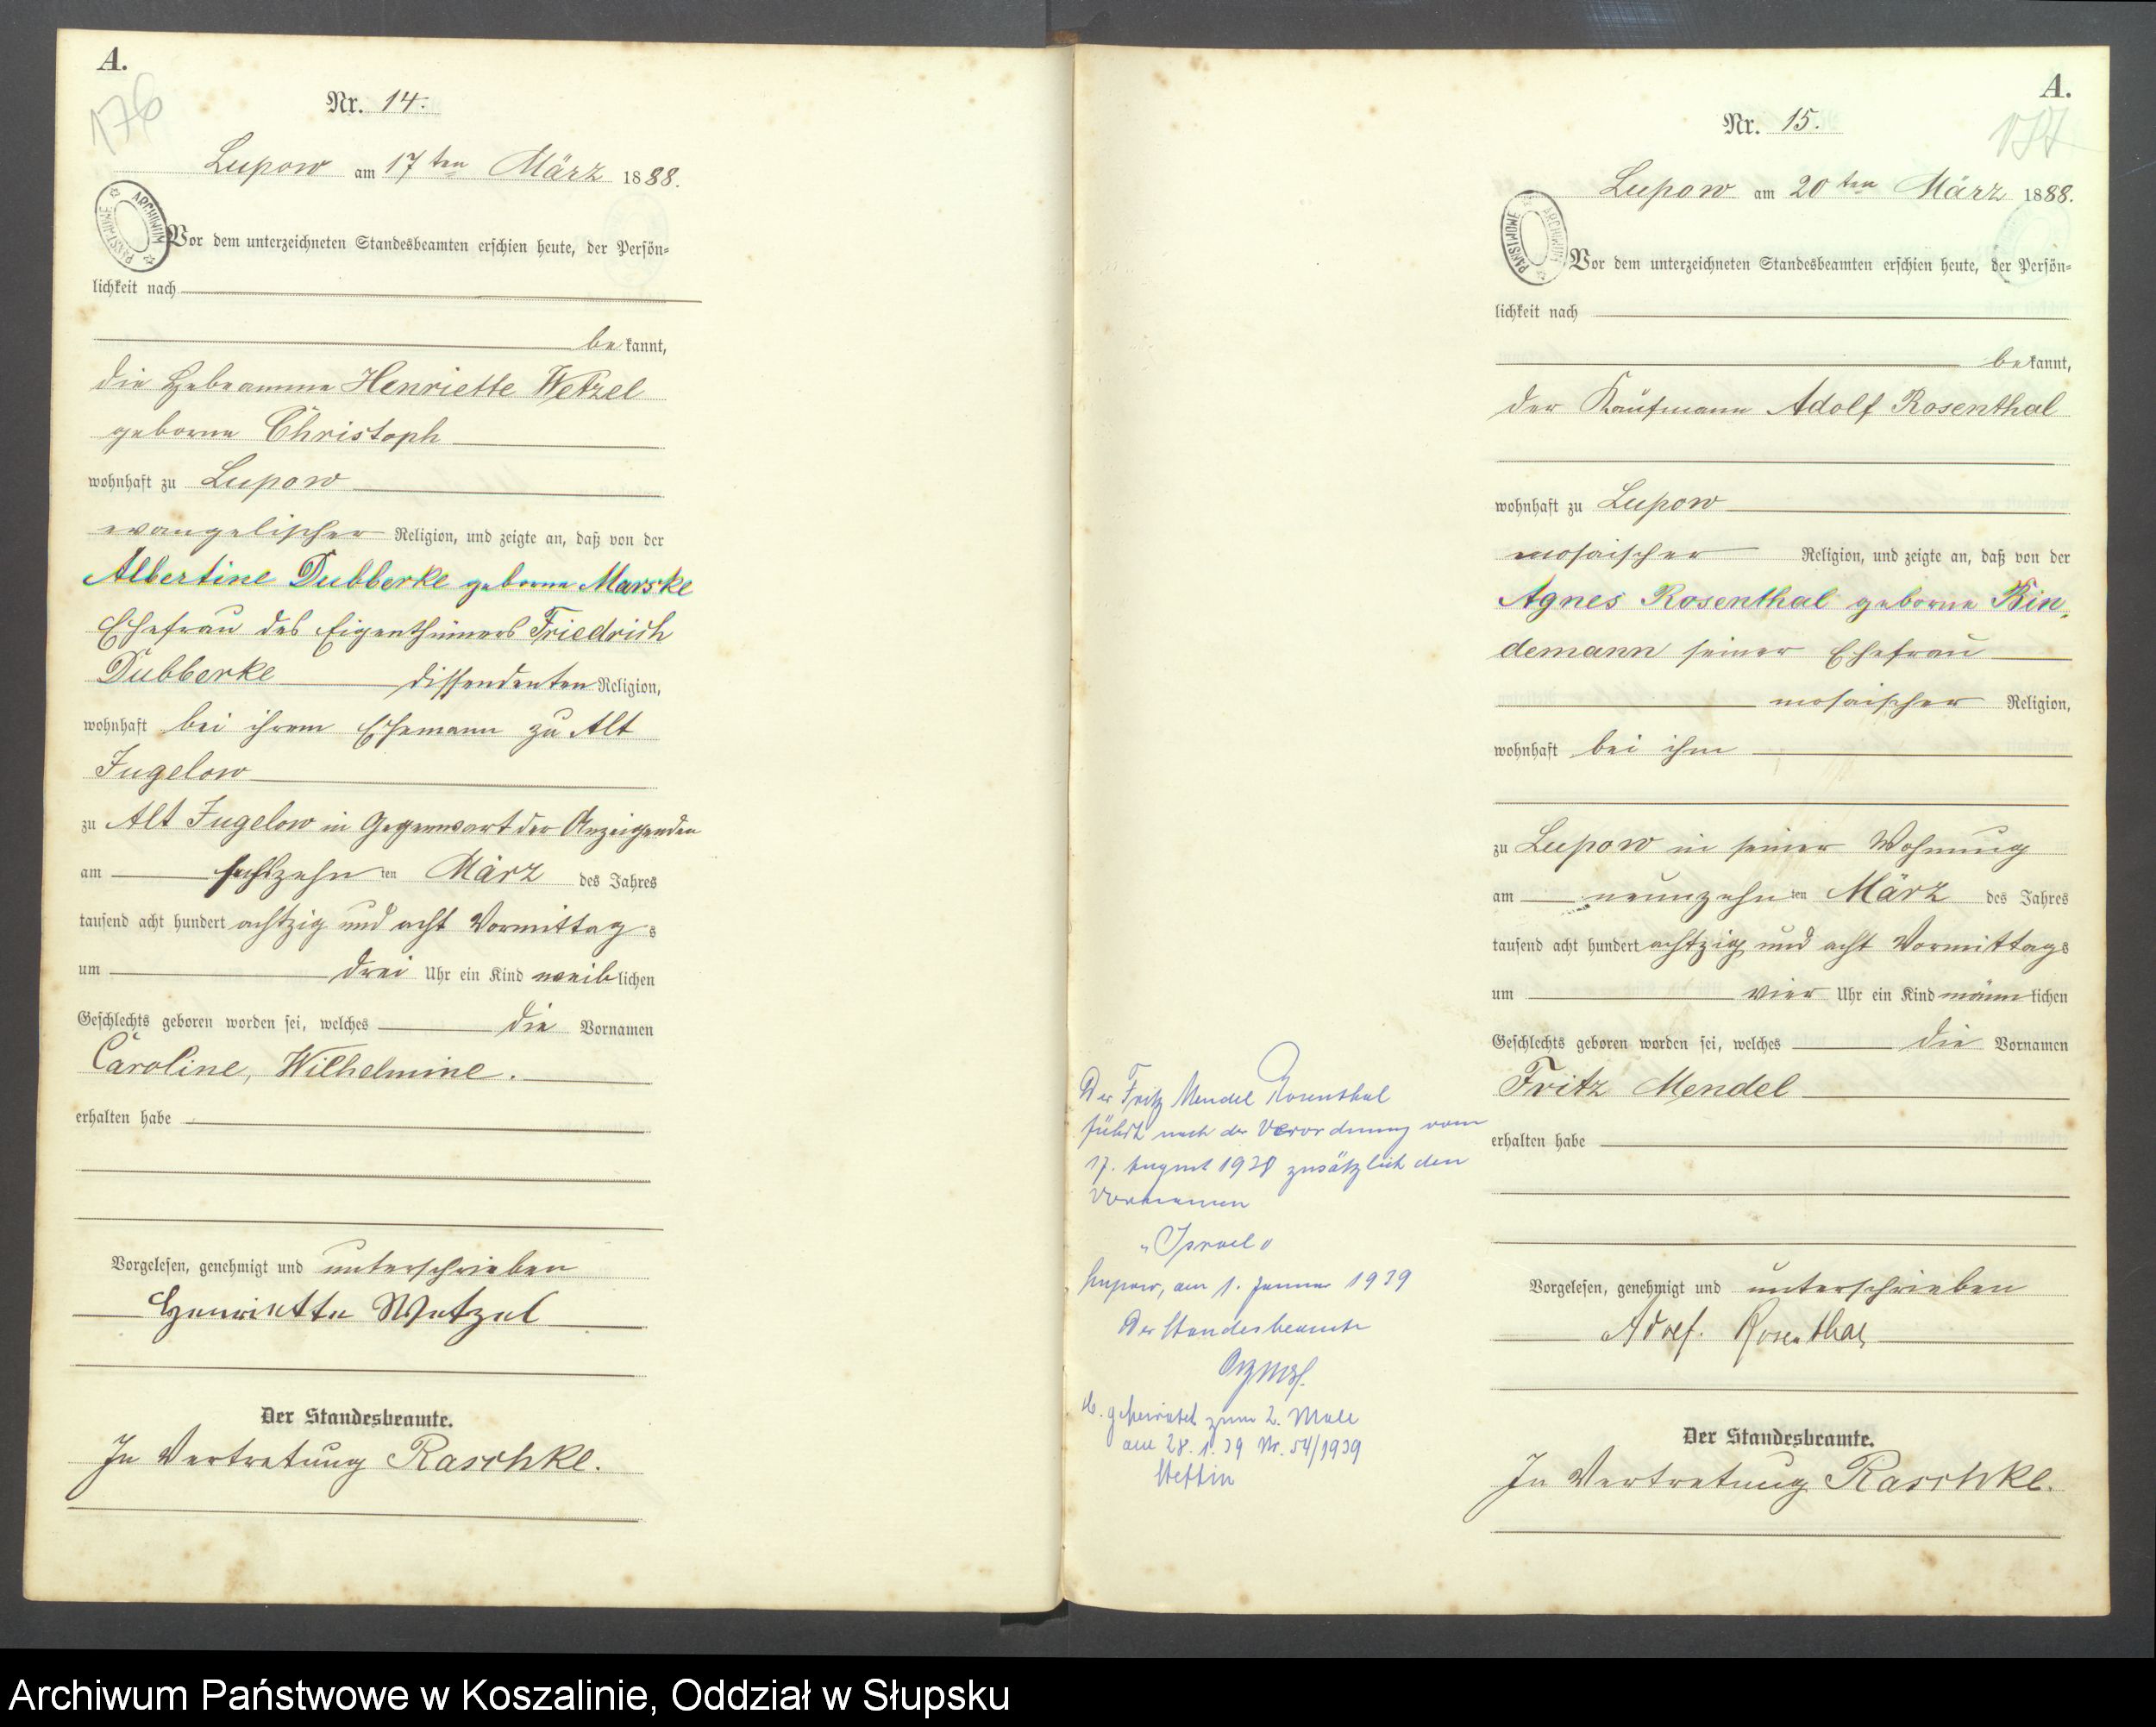 A.
176
Nr. 14.
Lupow am 17ten März 1888.
PAŃSTWOWE ARCHIWUM
Vor dem unterzeichneten Standesbeamten erschien heute, der Persön=
lichkeit nach
be kannt,
die Hebeamme Henriette Wetzel
geborne Christoph
wohnhaft zu Lupow
evangelischer Religion, und zeigte an, daß von der
Albertine Dubberke geborne Marske
Ehefrau des Eigenthümers Friedrich
Dubberke dissendenten Religion,
wohnhaft bei ihrem Ehemann zu Alt
Jugelow
zu Alt Jugelow in Gegenwart der Anzeigenden
am sechszehn ten März des Jahres
tausend acht hundert achtzig und acht Vormittag s
um drei Uhr ein Kind weib lichen
Geschlechts geboren worden sei, welches die Vornamen
Caroline, Wilhelmine.
erhalten habe
Vorgelesen, genehmigt und unterschrieben
Henriette Wetzel
Der Standesbeamte.
In Vertretung Raschke.
A.
Nr. 15.
Lupow am 20ten März 1888.
PAŃSTWOWE ARCHIWUM
Vor dem unterzeichneten Standesbeamten erschien heute, der Persön=
lichkeit nach
be kannt,
der Kaufmann Adolf Rosenthal
wohnhaft zu Lupow
mosaischer Religion, und zeigte an, daß von der
Agnes Rosenthal geborne Rin,
demann seiner Ehefrau
mosaischer Religion,
wohnhaft bei ihm
zu Lupow in seiner Wohnung
am neunzehn ten März des Jahres
tausend acht hundert achtzig und acht Vormittags
um vier Uhr ein Kind männ lichen
Geschlechts geboren worden sei, welches die Vornamen
Fritz Mendel
erhalten habe
Vorgelesen, genehmigt und unterschrieben
Adolf. Rosenthal
Der Standesbeamte.
In Vertretung Raschke.
Der Fritz Mendel Rosenthal
führt nach der Verordnung vom
17. August 1938 zusätzlich den
Vornamen
„Israel"
Lupow, am 1. Januar 1939
Der Standesbeamte
geheiratet zum 2. Male
am 28.1.39 Nr. 54/1939
Stettin
Archiwum Państwowe w Koszalinie, Oddział w Słupsku